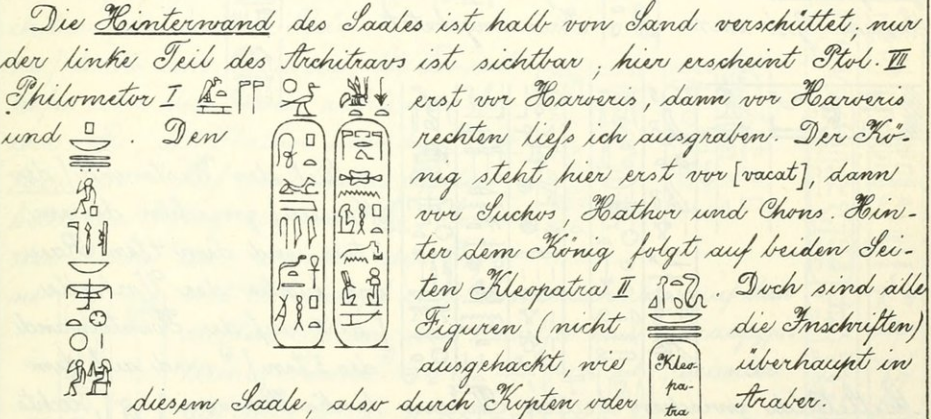 Die Hinterwand des Saales ist halb von Sand verschüttet; nur
der linke Teil des Architravs ist sichtbar, hier erscheint Ptol. VII
Philometor I erst vor Haroeris, dann vor Haroeris
und . Den rechten liefs ich ausgraben. Der Kö-
nig steht hier erst vor [vacat], dann
vor Suchos, Hathor und Chons. Hin-
ter dem König folgt auf beiden Sei-
ten Kleopatra II . Doch sind alle
Figuren (nicht die Inschriften)
ausgehackt, wie Kleo- überhaupt in
pa-
tra
diesem Saale, also durch Kopten oder Araber.